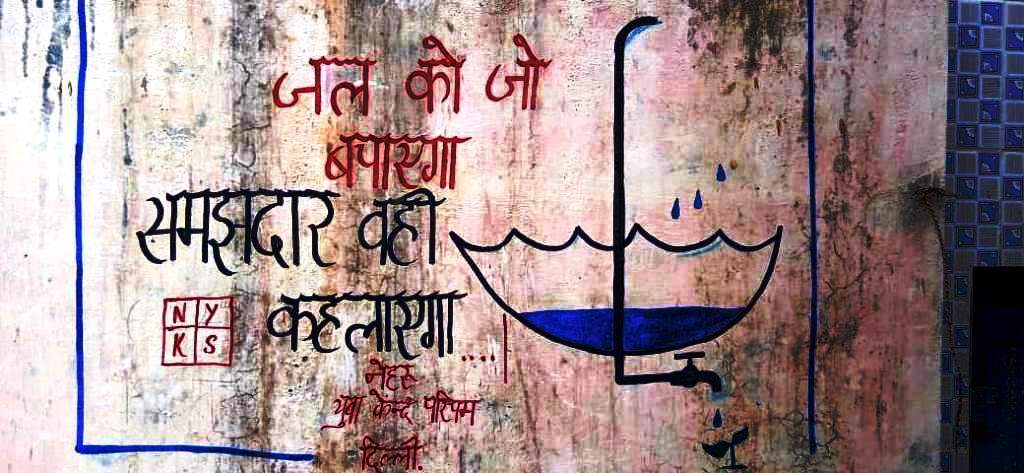 जल को जो
बचाएगा
समझदार वही
कहलाएगा....।
NY
KS
नेहरू
युवा केन्द्र पश्चिम
दिल्ली.